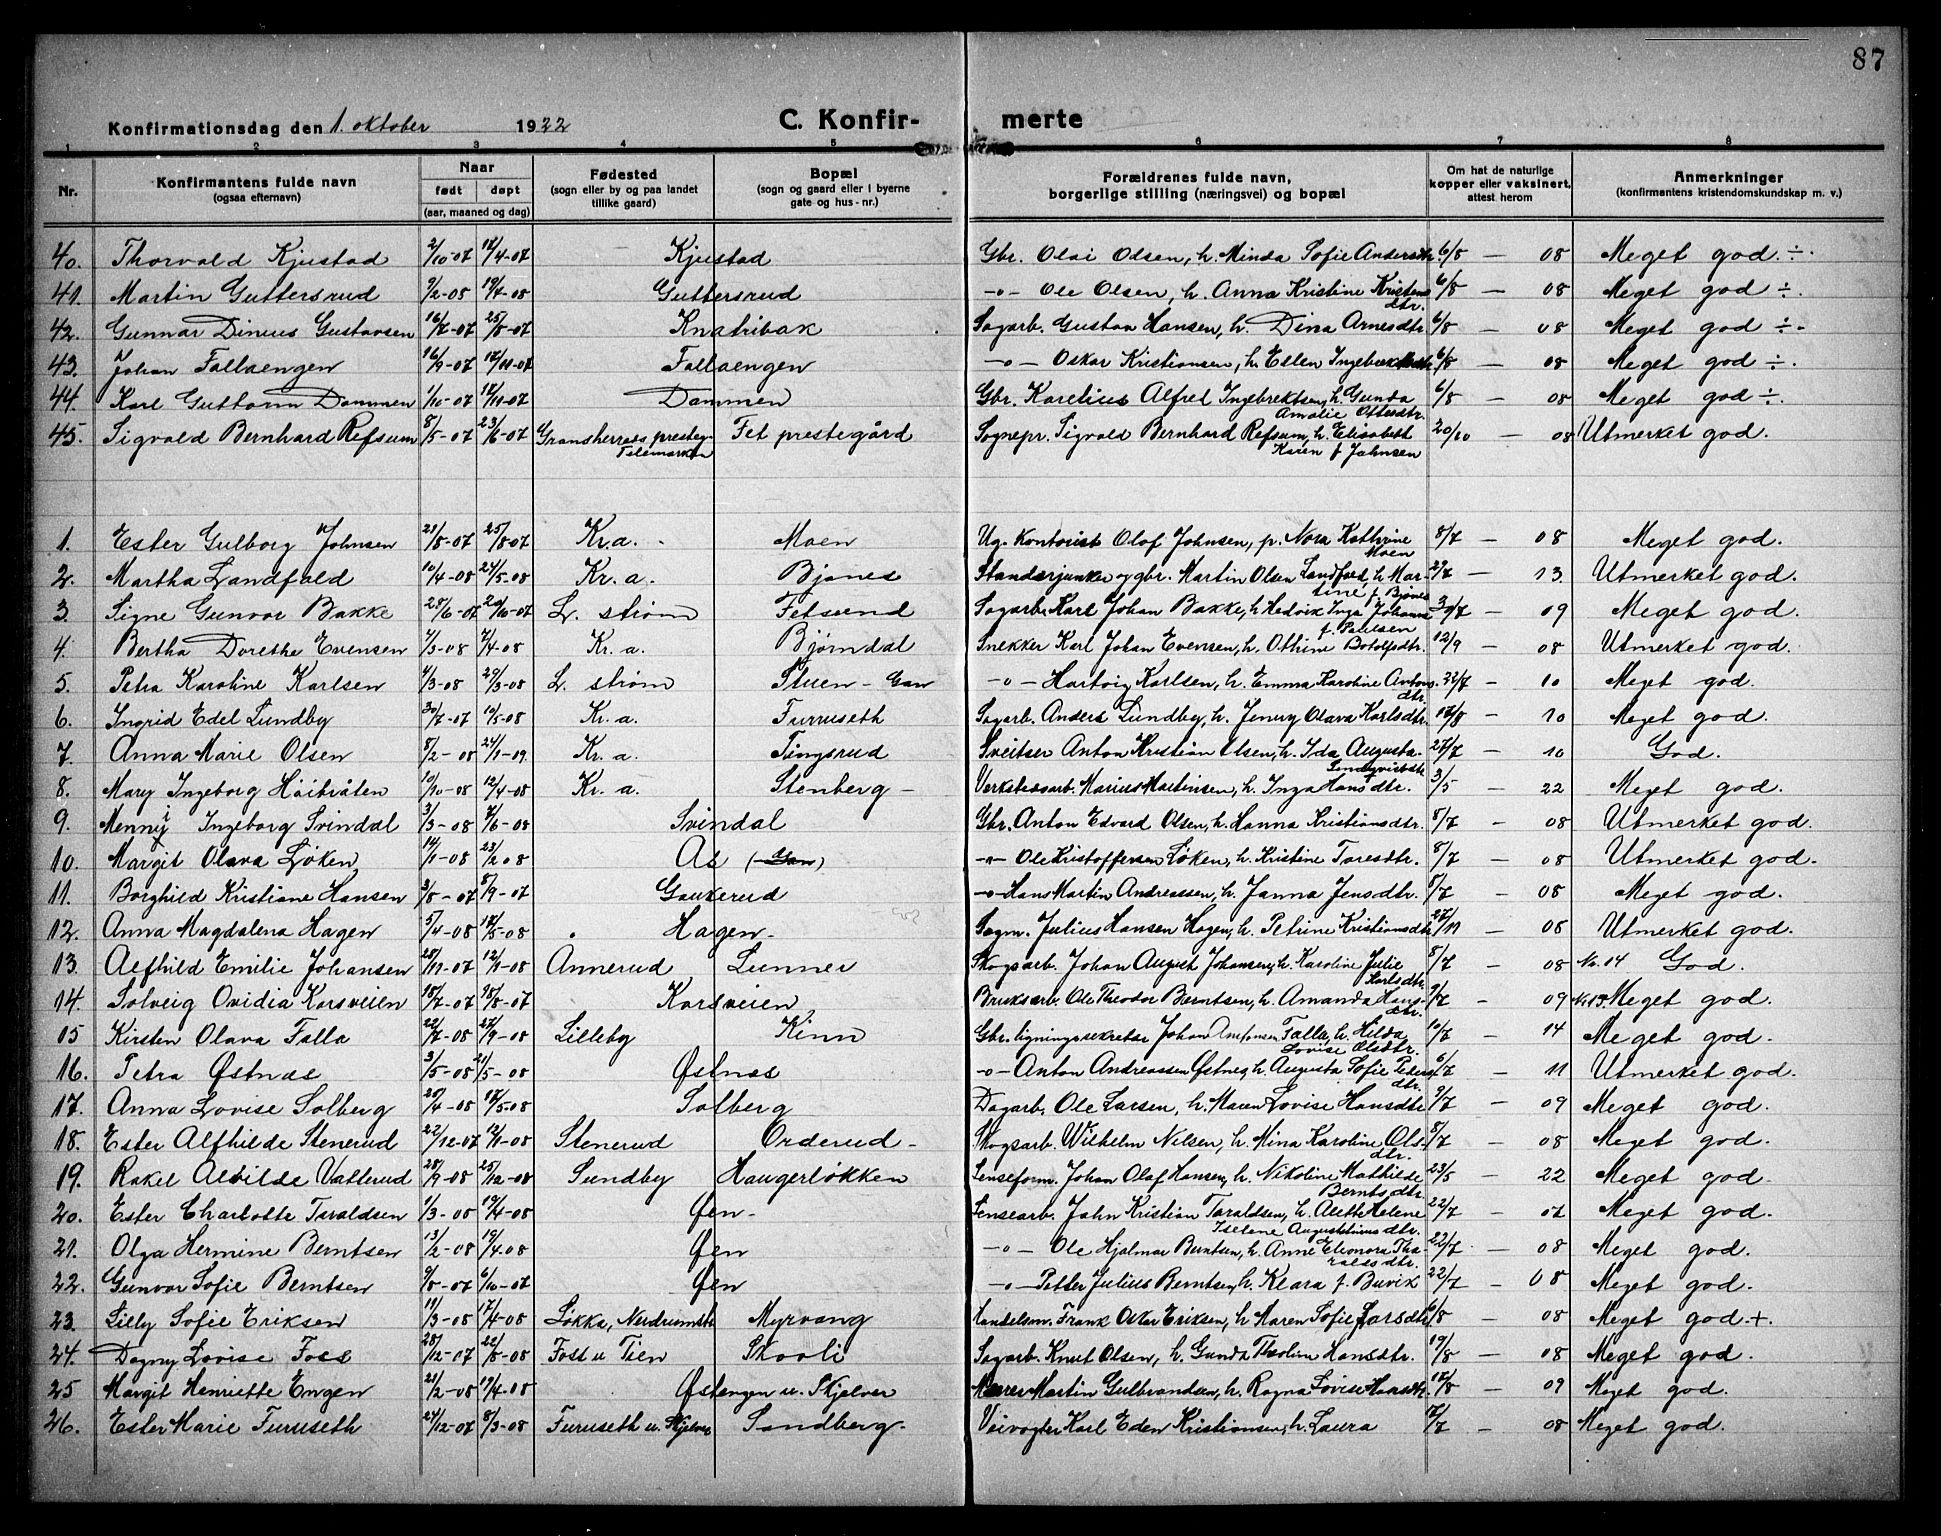 87
Konfirmationsdag den 1. oktober 1922 C. Konfir- merte
1 2 3 4 5 6 7 8
Nr. Konfirmantens fulde navn (ogsaa efternavn) Naar født døpt (aar, maaned og dag) Fødested (sogn eller by og paa landet tillike gaard) Bopæl (sogn og gaard eller i byerne gate og hus-nr.) Forældrenes fulde navn, borgerlige stilling (næringsvei) og bopæl Om hat de naturlige kopper eller vaksinert, attest herom Anmerkninger (konfirmantens kristendomskundskap m. v.)
40. Thorvald Kjustad 2/10-07 Kjustad Gbr. Olai Olsen, h. Minda Sofie Andersdtr. 6/8 — 08 Meget god. ÷.
41. Martin Guttersrud 9/2-08 19/4-08 Guttersrud -o- Ole Olsen, h. Anna Kristine Kristensdtr. 6/8 — 08 Meget god ÷.
42. Gunnar Dinius Gustavsen 16/7-07 25/8-07 Knatribak Sagarb. Gustav Hansen, h. Dina Arnesdtr. 6/8 — 08 Meget god ÷.
43. Johan Fallaengen 16/9-07 Fallaengen -o- Oskar Kristiansen, h. Ellen 6/8 — 08 Meget god ÷.
44. Karl Guttorm Dammen 1/10-07 Dammen Gbr. Karelius Alfred Ingebrektsen, h. Gunda Amalie Ottersdtr. 6/8 — 08 Meget god ÷.
45. Sigvald Bernhard Refsum 8/5-07 23/6-07 Gransherrads presteg. Telemarken Fet prestegård Sognepr. Sigvald Bernhard Refsum, h. Elisabeth Karen f. Johnsen 20/10 — 08 Utmerket god.
1. Ester Gulborg Johnsen 21/8-07 25/8-07 Kr.a. Moen Ug. Kontorist Olof Johnsen, p. Nora Kathrine Moen 8/7 — 08 Meget god.
2. Martha Landfald 10/4-08 24/5-08 Kr.a. Bjønes Standarjunker og gbr. Martin Olsen Landfald, h. Martine f. Bjønes 27/7 — 13 Utmerket god.
3. Signe Gunvor Bakke 28/6-07 20/10-07 L. strøm Fetsund Sagarb. Karl Johan Bakke, h. Hedvik Inga Johanne f. Paulsen 30/7 — 09 Meget god.
4. Bertha Dorethe Evensen 4/3-08 7/4-08 Kr.a. Bjørndal Snekker Karl Johan Evensen, h. Othine Botolfsdtr. 12/9 — 08 Utmerket god.
5. Petra Karoline Karlsen 4/3-08 29/3-08 L. strøm Stuen - Gan -o- Hartvig Karlsen, h. Emma Karoline Antonsdtr. 22/7 — 10 Meget god.
6. Ingrid Edel Lundby 30/7-07 10/5-08 Kr.a. Furruseth Sagarb. Anders Lundby, h. Jenny Olava Karlsdtr. 17/8 — 10 Meget god.
7. Anna Marie Olsen 8/2-08 24/1-09. Kr.a. Tingsrud Sveitser Anton Kristian Olsen, h. Ida Augusta 27/7 — 10 God.
8. Mary Ingeborg Høibråten 10/10-08 12/4-08 Kr.a. Stenberg - Verkstedsarb. Marius Martinsen, h. Inga Hansdtr. 3/5 — 22 Meget god.
9. Menny Ingeborg Svindal 3/3-08 7/6-08 Svindal Gbr. Anton Edvard Olsen, h. Hanna Kristiansdtr. 8/7 — 08 Utmerket god.
10. Margit Olava Løken 14/1-08 23/2 08 As (Gan) -o- Ole Kristoffersen Løken, h. Kristine Toresdtr. 8/7 — 08 Utmerket god.
11. Borghild Kristiane Hansen 3/8-07 8/9-07 Gauxerud -o- Hans Martin Andreassen, h. Janna Jensdtr. 8/7 — 08 Meget god.
12. Anna Magdalena Hagen 5/4-08 17/5-08 Hagen - Sagm. Julius Hansen Hagen, h. Petrine Kristiansdtr. 27/11 — 08 Utmerket god.
13. Alfhild Emilie Johansen 28/11-07 12/1-08 Annerud Lunner Skogsarb. Johan August Johansen, h. Karoline Julie Karlsdtr. 8/7 — 08 No. 14 God.
14. Solveig Ovidia Korsveien 18/7-07 18/8-07 Korsveien Bruksarb. Ole Theodor Berntsen, h. Amanda Hansdtr. 9/7 — 09 No 13. Meget god.
15 Kirsten Olava Falla 22/7-08 27/9-08 Lilleby Kinn Gbr. ligningssekretær Johan Falla, h. Hilda Lovise Olsdtr. 10/7 — 14 Meget god.
16. Petra Østnæs 3/5-08 21/5-08 Østnæs -o- Anton Andreassen Østnes, h. Augusta Sofie Pedersdtr. 6/7 — 11 Utmerket god.
17. Anna Lovise Solberg 20/4-08 17/5-08 Solberg Dagarb. Ole Larsen, h. Maren Lovise Hansdtr 9/7 — 09 Meget god.
18. Ester Alfhilde Stenerud 22/12-07 12/1-08 Stenerud Orderud - Skogsarb. Wilhelm Nilsen, h. Mina Karoline Olsdtr. 8/7 — 08 Meget god.
19. Rakel Alvilde Vallerud 28/9-08 25/12-08 Sundby Haugerløkken Lenseform. Johan Olaf Hansen, h. Nikoline Mathilde Berntsdtr. 23/5 — 22 Meget god.
20. Ester Charlotte Taraldsen 1/3-08 19/4-08 Øen - Lensearb. John Kristian Taraldsen, h. Alette Helene Iselene Augustinusdtr. 22/7 — 07 Meget god.
21. Olga Hermine Berntsen 13/2-08 19/4.08 Øen -o- Ole Hjalmar Berntsen, h. Anne Eleonora Tharaldsdtr. 22/7 — 08 Meget god.
22. Gunvor Sofie Berntsen 9/8-07 6/10-07 Øen -o- Petter Julius Berntsen, h. Klara f. Buvik 22/7 — 08 Meget god.
23. Lilly Sofie Eriksen 11/3-08 17/4-08 Løkka, Nerdrumsth Myrvang Handelsm. Frank Oskar Eriksen, h. Maren Sofie Larsdtr. 6/8 — 08 Meget god. +.
24. Dagny Lovise Foss 28/12-07 22/8-08 Foss u Tien Skovli Sagarb. Knut Olsen, h. Gunda Theoline Hansdtr. 19/8 — 08 Meget god.
25 Margit Henriette Engen 21/2-08 19/4-08 Østengen u. Skjelver Murer Martin Gulbrandsen, h. Ragna Lovise Hansdtr. 17/8 — 09 Meget god.
26. Ester Marie Furuseth 24/12-07 8/3-08 Furuseth u. Skjelver Sandberg - Veivogter Karl Eden Kristiansen, h. Laura 17/7 — 08 Meget god.